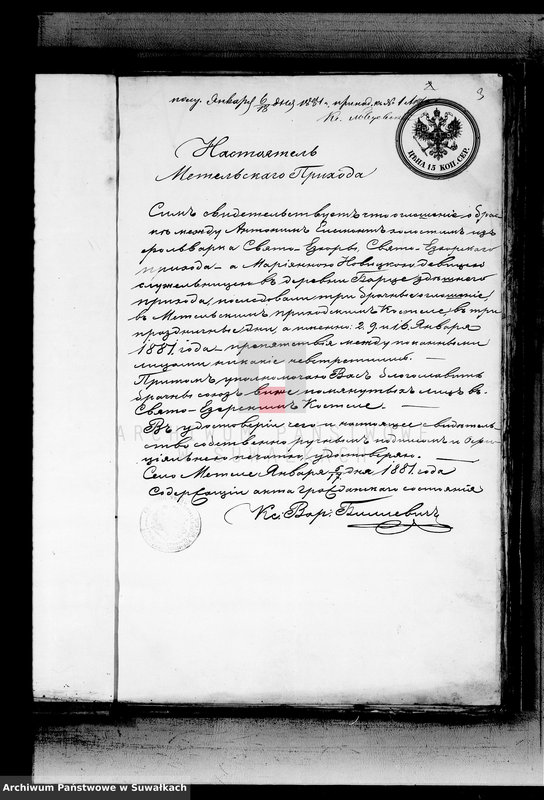 3
полу. Января 6/18 дня 1881 г. приход. к. № 1
ЦѢНА 15 КОП. СЕР.
Настоятель
Метельского Прихода
Симъ свидетельствуетъ что оглошение о бра-
кѣ между Антонимъ холостимъ изъ
фольварка Свято-Езоры, Свято-Езорскаго
прихода – а Маріянною Новицкою девицею
служительницею въ деревни здешнего
прихода, последовали три брачные оглошение,
въ Метельскимъ приходскимъ Костеле, въ три
праздничные дни, а именно: 2. 9 и 16. Января
1881. года – препятствия между
лицами никакие невстретились. —
Притомъ уполномогаю Васъ благославить
брачны союз выше помянутых лицъ в.
Свято-Езерскимъ Костеле. —
Въ удостоверіи чего и настоящее свидетель-
ство собственно ручнымъ подписом и
печатию, удостоверяю. —
Село Метеле Января дня 1881. года
Содержащій акта Гражданского состоянія
Кс: Вар: Билиевичъ
ARCHIWUM PAŃSTWOWE
SUWAŁKI
Archiwum Państwowe w Suwałkach